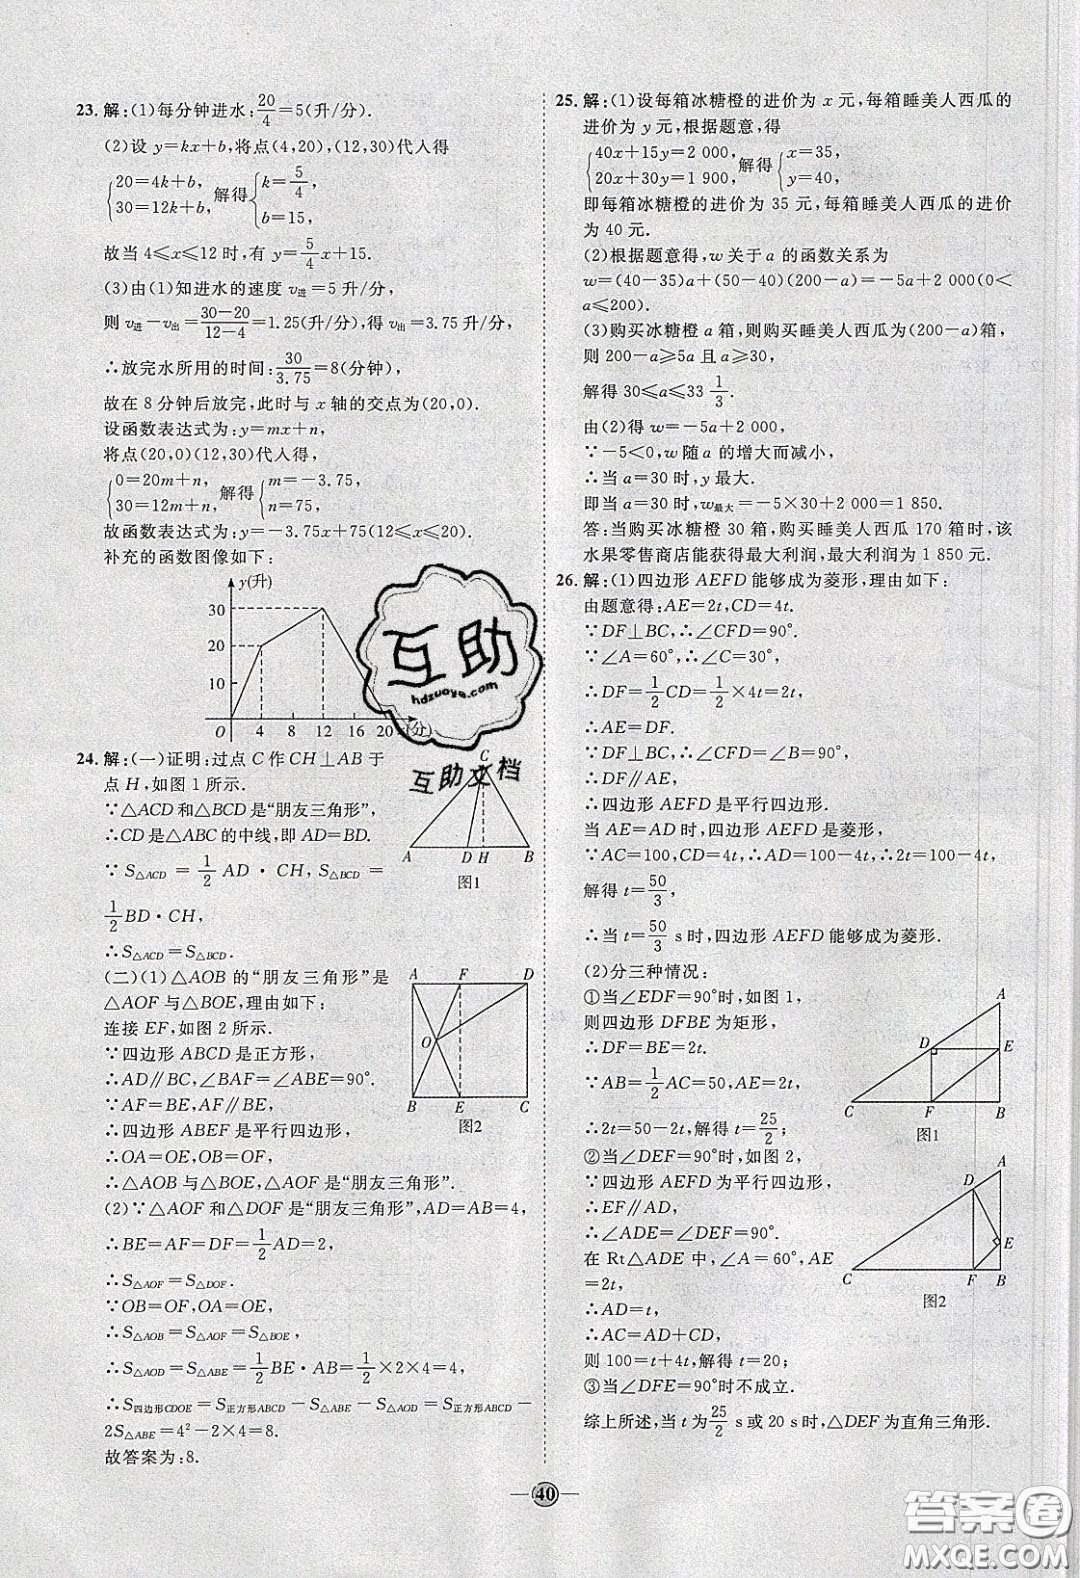 23. 解:(1)每分钟进水:20/4=5(升/分).
(2)设 y=kx+b,将点(4,20),(12,30)代人得
{20=4k+b, 30=12k+b, 解得{k=5/4, b=15,
故当 4≤x≤12 时,有 y=5/4x+15.
(3)由(1)知进水的速度 v进=5 升/分,
则 v进-v出=30-20/12-4=1.25(升/分),得 v出=3.75 升/分,
∴放完水所用的时间:30/3.75=8(分钟).
故在 8 分钟后放完,此时与 x 轴的交点为(20,0).
设函数表达式为:y=mx+n,
将点(20,0)(12,30)代人得,
{0=20m+n, 30=12m+n, 解得{m=-3.75, n=75.
故函数表达式为:y=-3.75x+75(12≤x≤20).
补充的函数图像如下:
y(升)
30
20
10
O 4 8 12 16 20 x(分)
24. 解:(一)证明:过点 C 作 CH⊥AB 于
点 H,如图 1 所示.
∵△ACD 和△BCD 是“朋友三角形”,
∴CD 是△ABC 的中线,即 AD=BD.
∵ S△ACD = 1/2 AD · CH, S△BCD =
1/2 BD·CH,
∴S△ACD=S△BCD.
C
A D H B
图1
(二)(1)△AOB 的“朋友三角形”是
△AOF 与△BOE,理由如下:
连接 EF,如图 2 所示.
∵四边形 ABCD 是正方形,
∴AD∥BC,∠BAF=∠ABE=90°.
∵AF=BE,AF∥BE,
∴四边形 ABEF 是平行四边形,
∴OA=OE,OB=OF,
∴△AOB 与△AOF、△BOE 是“朋友三角形”.
A F D
O
B E C
图2
(2)∵△AOF 和△DOF 是“朋友三角形”,AD=AB=4,
∴BE=AF=DF=1/2AD=2,
∴S△AOF=S△DOF.
∵OB=OF,OA=OE,
∴S△AOB=S△AOF=S△BOE,
∴S△AOD=S△ABE=1/2BE·AB=1/2×2×4=4,
∴S四边形CDOE=S正方形ABCD-S△ABE-S△AOD=S正方形ABCD-
2S△ABE=4²-2×4=8.
故答案为:8.
25. 解:(1)设每箱冰糖橙的进价为 x 元,每箱睡美人西瓜的
进价为 y 元,根据题意,得
{40x+15y=2 000, 20x+30y=1 900, 解得{x=35, y=40.
即每箱冰糖橙的进价为 35 元,每箱睡美人西瓜的进价
为 40 元.
(2)根据题意得,w 关于 a 的函数关系为
w=(40-35)a+(50-40)(200-a)=-5a+2 000(0<
a≤200).
(3)购买冰糖橙 a 箱,则购买睡美人西瓜为(200-a)箱,
则 200-a≥5a 且 a≥30,
解得 30≤a≤33 1/3.
由(2)得 w=-5a+2 000,
∵-5<0,w 随 a 的增大而减小,
∴当 a=30 时,y 最大.
即当 a=30 时,w最大=-5×30+2 000=1 850.
答:当购买冰糖橙 30 箱,购买睡美人西瓜 170 箱时,该
水果零售商店能获得最大利润,最大利润为 1 850 元.
26. 解:(1)四边形 AEFD 能够成为菱形,理由如下:
由题意得:AE=2t,CD=4t.
∵DF⊥BC,∴∠CFD=90°.
∵∠A=60°,∴∠C=30°,
∴DF=1/2CD=1/2×4t=2t,
∴AE=DF.
∵DF⊥BC,∴∠CFD=∠B=90°,
∴DF∥AE,
∴四边形 AEFD 是平行四边形.
当 AE=AD 时,四边形 AEFD 是菱形,
∵AC=100,CD=4t,∴AD=100-4t,∴2t=100-4t,
解得 t=50/3,
∴当 t=50/3 s 时,四边形 AEFD 能够成为菱形.
(2)分三种情况:
①当∠EDF=90°时,如图 1,
则四边形 DFBE 为矩形,
∴DF=BE=2t.
∵AB=1/2AC=50,AE=2t,
∴2t=50-2t,解得 t=25/2;
②当∠DEF=90°时,如图 2,
∵四边形 AEFD 为平行四边形,
∴EF∥AD,
∴∠ADE=∠DEF=90°.
在 Rt△ADE 中,∠A=60°,AE
=2t,
∴AD=t,
∴AC=AD+CD,
则 100=t+4t,解得 t=20;
③当∠DFE=90°时不成立.
综上所述,当 t 为25/2 s 或 20 s 时,△DEF 为直角三角形.
A
D E
C F B
图1
A
D
E
C F B
图2
互助
hdzuoye.com
互助文档
40
答案圈
MXQE.COM